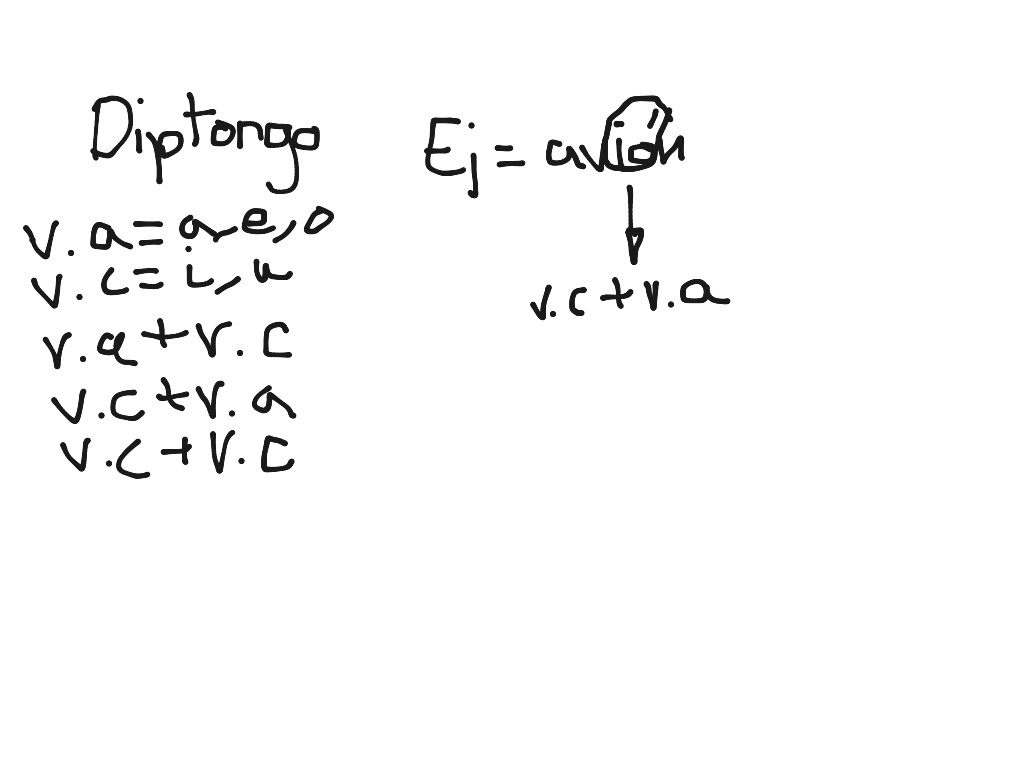 Diptongo
v.a=a,e,o
v.c=i,u
v.a+v.c
v.c+v.a
v.c+v.c
Ej=avión
v.c+v.a